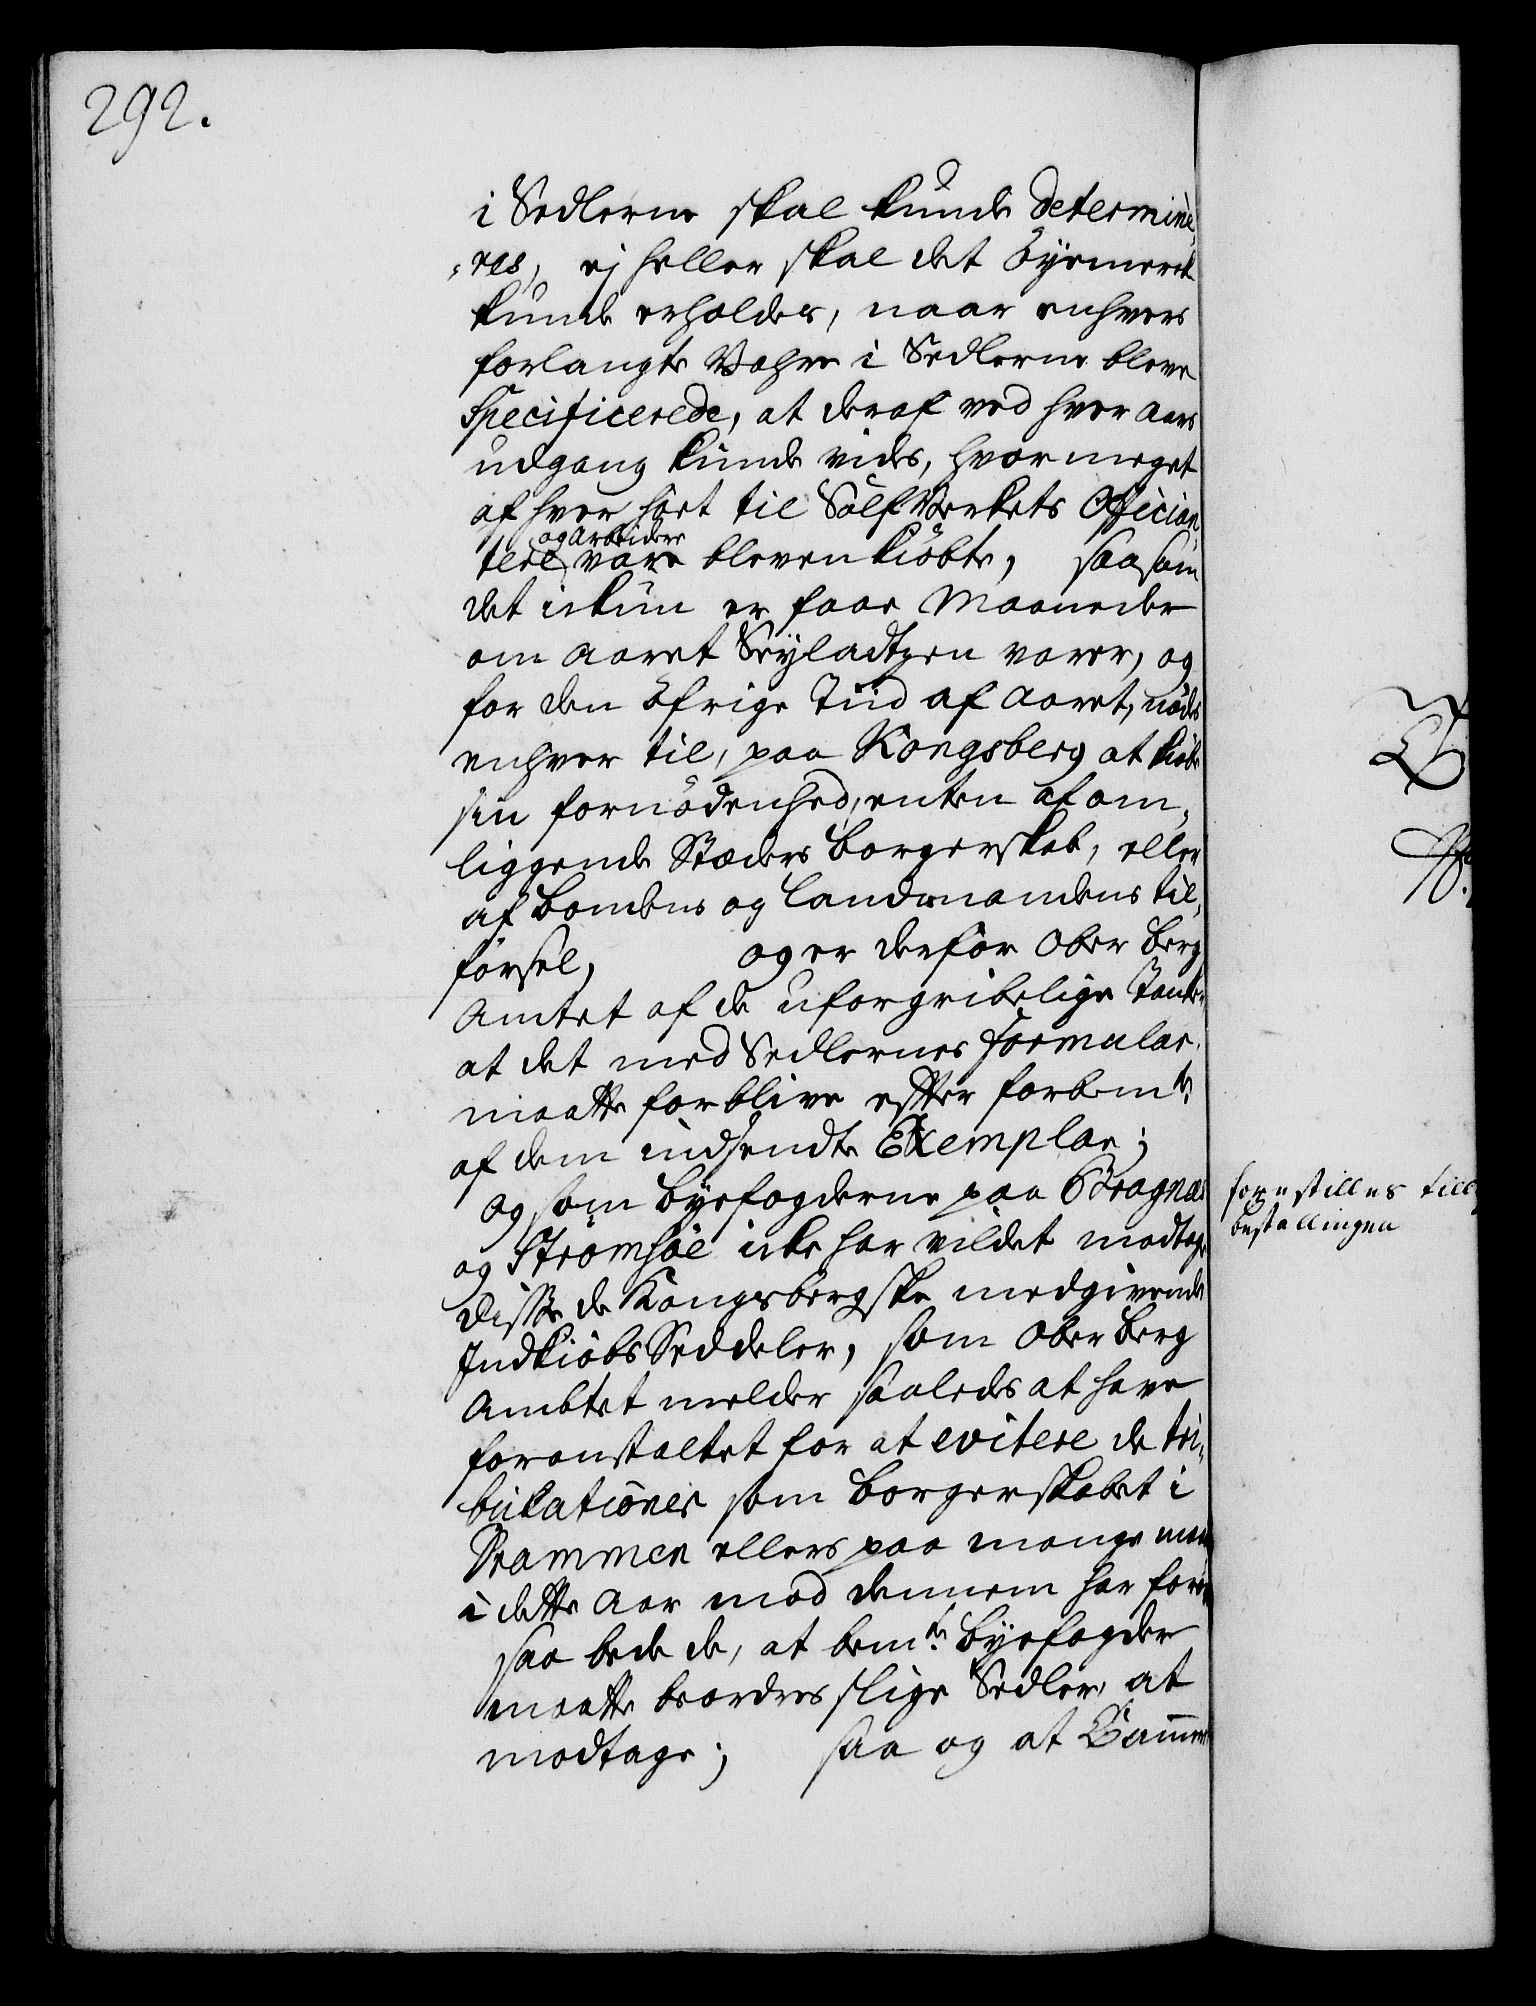 292.
i Sedlerne skal kunde determine,
„res, ej heller skal det Øyemerck
kunde erholdes, naar enhvers
forlangte Vahre i Sedlerne bleve
Specificerede, at deraf ved hver Aars
udgang kunde vides, hvor meget
af hver sort til SølfVerkets Offician,
tere og Arbeidere vare bleven kiøbte, saasom
det ickun er faae Maaneder
om Aaret Seyladtzen varer, og
for den øfrige Tiid af Aaret, nødes
enhver til, paa Kongsberg at kiøbe
sin fornødenhed, enten af om,
liggende Stæders Borgerskab, eller
af Bondens og Landmandens til,
førsel, og er derfor Ober Berg
Amtet af de uforgribelige Tanker
at det med Sedlernes Formular
maatte forblive efter forbemte
af dem indsendte Exemplar;
og som Byefogderne paa Bragnæs
og Strømsøe icke har vildet modtage
disse de Kongsbergske medgivende
Indkiøbs Seddeler, som Ober Berg
Ambtet melder saaledes at have
foranstaltet for at evitere de tri,
bulationer som Borgerskabet i
Drammen ellers paa mange maader
i dette Aar mod dennem har
saa bede de, at bemte Byefogder
maatte beordres slige Sedler at
modtage; saa og at
forestilles
bestallingen